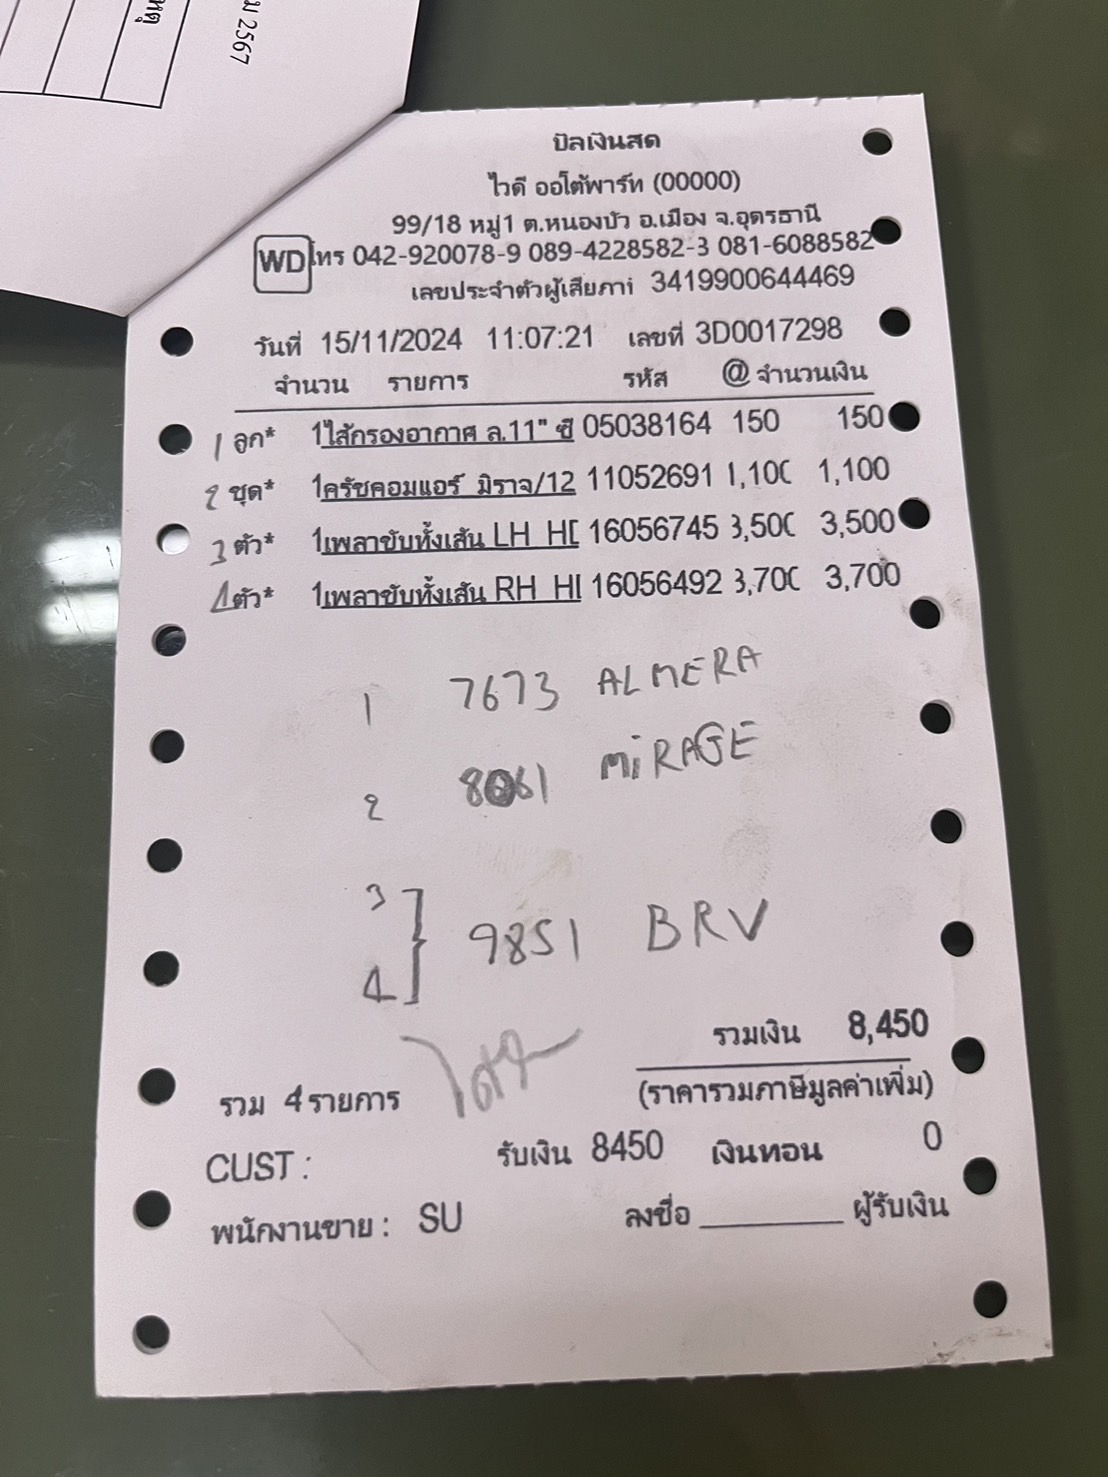 ม 2567
บิลเงินสด
ไวดี ออโต้พาร์ท (00000)
99/18 หมู่1 ต.หนองบัว อ.เมือง จ.อุดรธานี
WD โทร 042-920078-9 089-4228582-3 081-6088582
เลขประจำตัวผู้เสียภาi 3419900644469
วันที่ 15/11/2024 11:07:21 เลขที่ 3D0017298
จำนวน รายการ รหัส @ จำนวนเงิน
1 ลูก* 1ไส้กรองอากาศ ล.11" ซี 05038164 150 150
2 ชุด* 1ครัชคอมแอร์ มิราจ/12 11052691 1,100 1,100
3 ตัว* 1เพลาขับทั้งเส้น LH H 16056745 3,500 3,500
4 ตัว* 1เพลาขับทั้งเส้น RH H 16056492 3,700 3,700
1 7673 ALMERA
2 8061 MiRAGE
3
4 } 9851 BRV
รวมเงิน 8,450
รวม 4 รายการ (ราคารวมภาษีมูลค่าเพิ่ม)
CUST : รับเงิน 8450 เงินทอน 0
พนักงานขาย : SU ลงชื่อ ________ ผู้รับเงิน